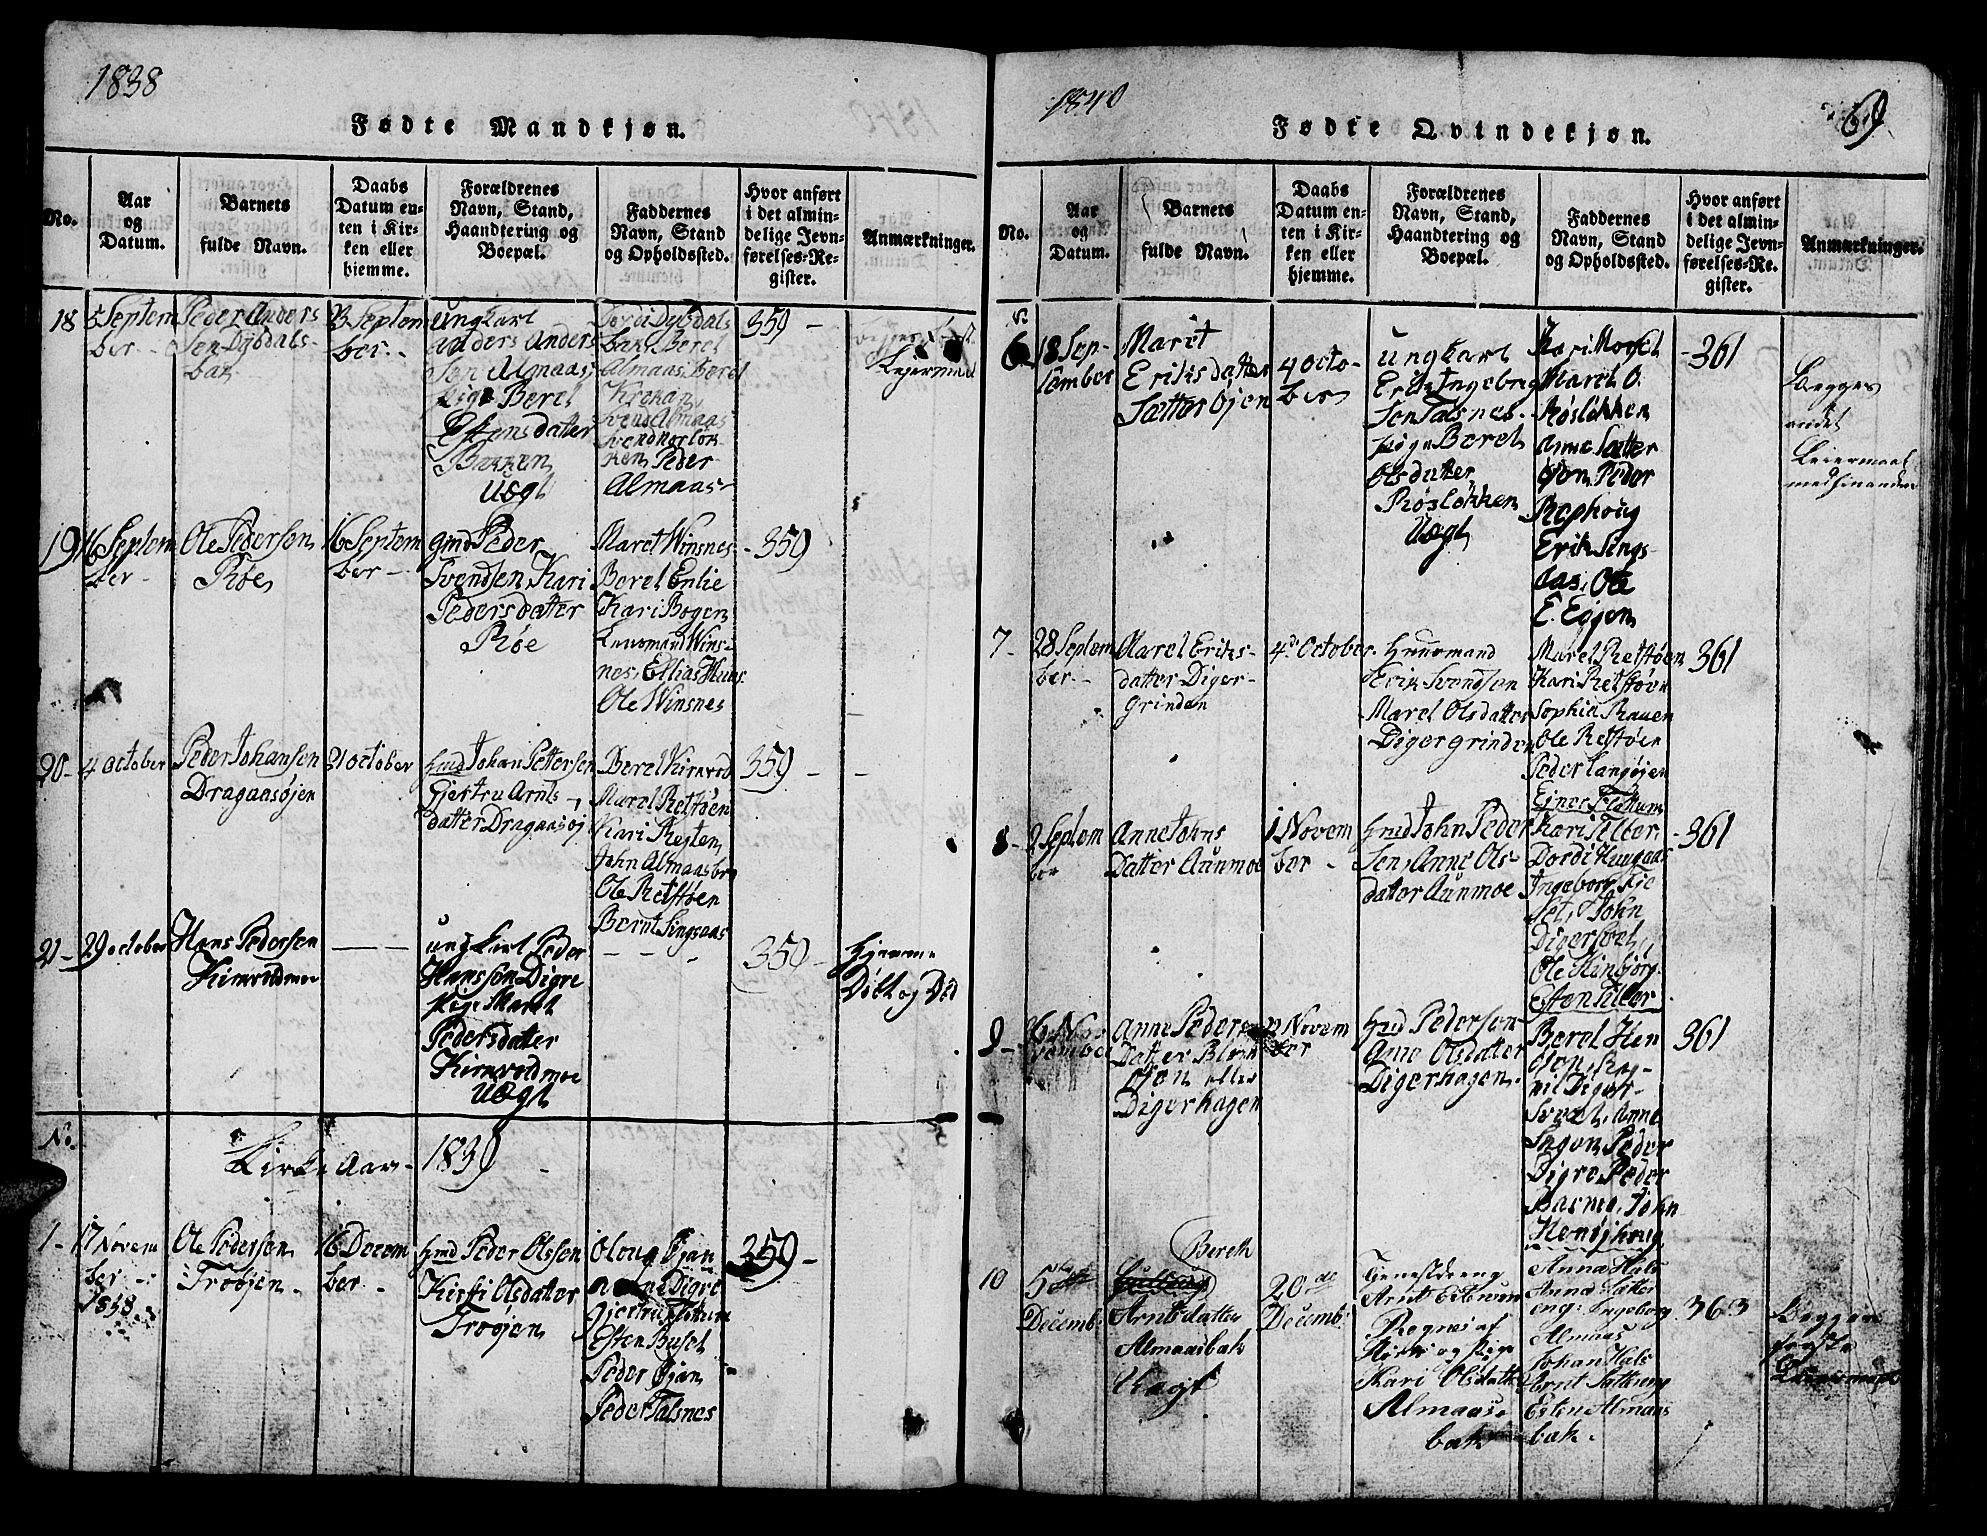 1838
Fødte Mandkjøn.
No.
Aar
og
Datum.
Barnets
fulde Navn.
Daabs
Datum en-
ten i Kir-
ken eller
hjemme.
Forældrenes
Navn, Stand,
Haandtering og
Boepæl.
Faddernes
Navn, Stand
og Opholdssted.
Hvor anført
i det almin-
delige Jevn-
førelses-Re-
gister.
Anmærkninger.
18
5 Septem
ber
Peder Anders
Sen Dybdals-
bak
23 Septem
ber
Ungkarl
Anders Anders
Sen Almaas
pige Berel
Estensdatter
Bakken
Uægt
Dordi Dybdals
bak Berel
Almaas Berel
Svend Almaas
Svend Norløk
ken Peder
Almaas
359
Leiermaal
19
16 Septem
ber
Ole Pedersen
Røe
16 Septem
ber
gmd Peder
Svendsen Kari
Pedersdatter
Røe
Maret Winsnes
Berel Enlie
Kari Bogen
Lensmand Wins-
nes, Ellias
Ole Winsnes
359
20
4 October
Peder Johansen
Dragaasøjen
21 October
hmd Johan Pettersen
Gjertru Arnts-
datter Dragaasøj
Berel Kirkvold
Marel Retstøen
Kari Resten
John Almaasbr
Ole Retstøen
Bernt Singsaas
359
21
29 October
Hans Pedersen
Kirkvoldmoe
ung Karl Peder
Hanssen Digre
Pige Maret
Pedersdatter
Kirkvoldmoe
Uægt
350
Hjemme
Døbt og Død
No.
Kirke Aar
1839
1
17 Novem
ber
1838
Ole Pedersen
Trøøjen
16 Decem
ber
hmd Peder Olssen
Kirsti Olsdatter
Trøøjen
Oloug Øjan
Digre
Gjertru Flotum
Esten Buset
Peder Øjan
Peder Talsnes
359
1840
69
Fødte Qvindekjøn.
No.
Aar
og
Datum.
Barnets
fulde Navn.
Daabs
Datum en-
ten i Kir-
ken eller
hjemme.
Forældrenes
Navn, Stand,
Haandtering og
Boepæl.
Faddernes
Navn, Stand
og Opholdssted.
Hvor anført
i det almin-
delige Jevn-
førelses-Re-
gister.
Anmærkninger.
6
18 Sep-
tember
Marit
Eriksdatter
Sætterøjen
4 Octo-
ber
Ungkarl
Erik Ingebrig
Sen Talsnes
pige Berel
Olsdatter
Røsløkken
Uægt
Kari Moget
Marel O.
Røsløkken
Anne Sætter
øjen Peder
Raphoug
Erik Sings-
aas, Ole
E. Egjen
361
Begges
andet
Leiermaal
7
28 Septem
ber
Marel Eriks-
datter Diger-
grinden
4de October
Huusmand
Erik Svendsen
Marel Olsdatter
Digergrinden
Marel Retstøen
Kari Retstøen
Sophia Rauen
Ole Retstøen
Peder Langøjen
Ejner Flottum
361
8
2 Septem
ber
Anne Johns
Datter Aunmoe
1 Novem
ber
hmd John Peder
Sen, Anne Ols-
datter Aunmoe
Kari Tilber
Dordi Haugaas
Ingeborg Kje
Set, John
Digersvel
Ole Kinbjørg
Esten Tiller
361
9
Anne Peders
Datter
øjen eller
Digerhagen
Novem
ber
hmd Pedersen
Ane Olsdatter
Digerhagen
Berel Hen
Diger-
Anne
Ingen, Peder
Digre, Peder
Barmo, John
361
10
5
Decemb:
Bereth
Arntsdatter
Almaasbak
Uægt
20de
Decemb:
Tjenestdreng
Arnt Estensen
og Pige
Kari Olsdatter
Almaas-
bak
Anna Hals
Anna Sætter
eng: Ingeborg
Almaas
Johan Hals
Arnt Sættreng
Esten Almaas
bak.
363
Begges
første
Leiermaal